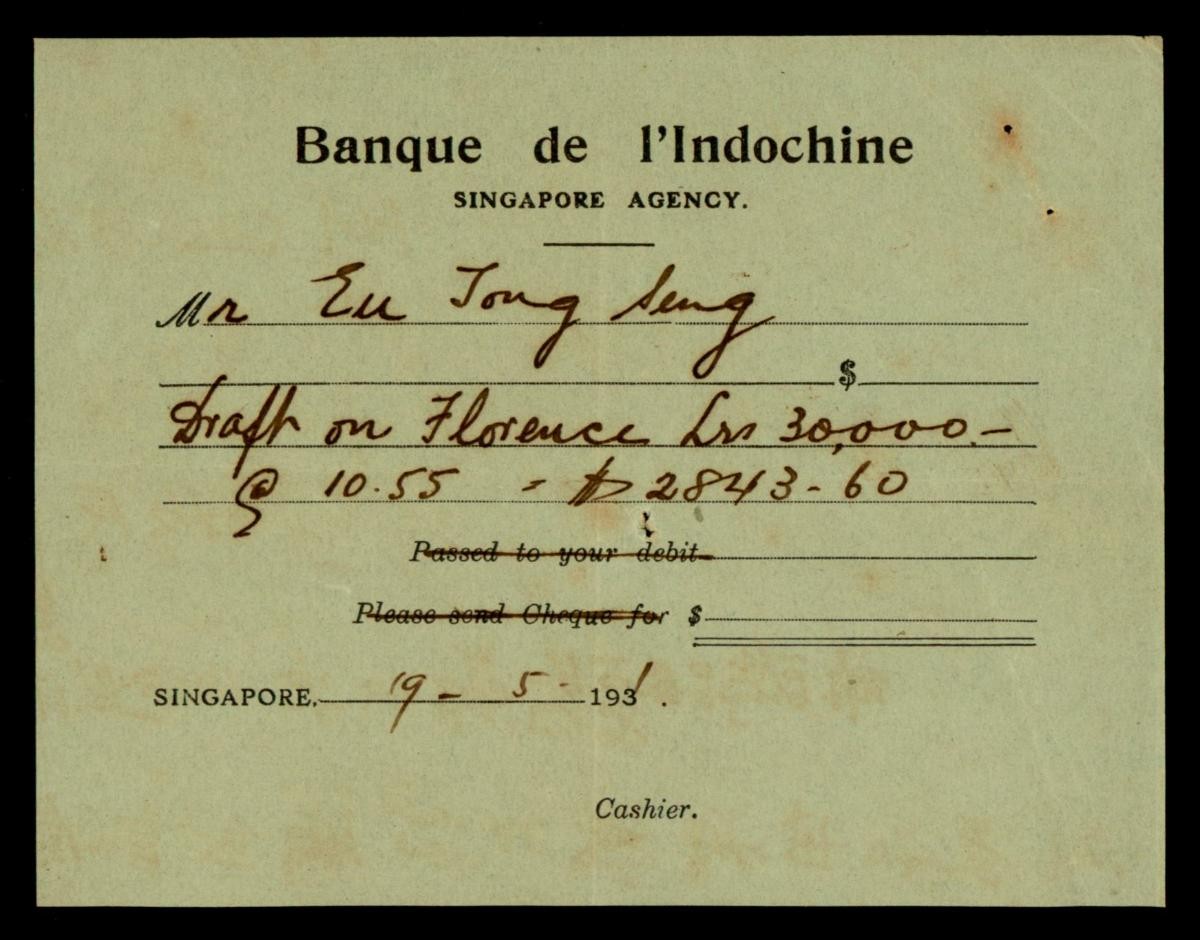 Banque de l'Indochine
SINGAPORE AGENCY.
Mr Eu Tong Seng
$
Draft on Florence Lrs 30,000.-
@ 10.55 = $ 2843-60
Passed to your debit
Please send Cheque for $
SINGAPORE, 19 - 5 - 1931.
Cashier.